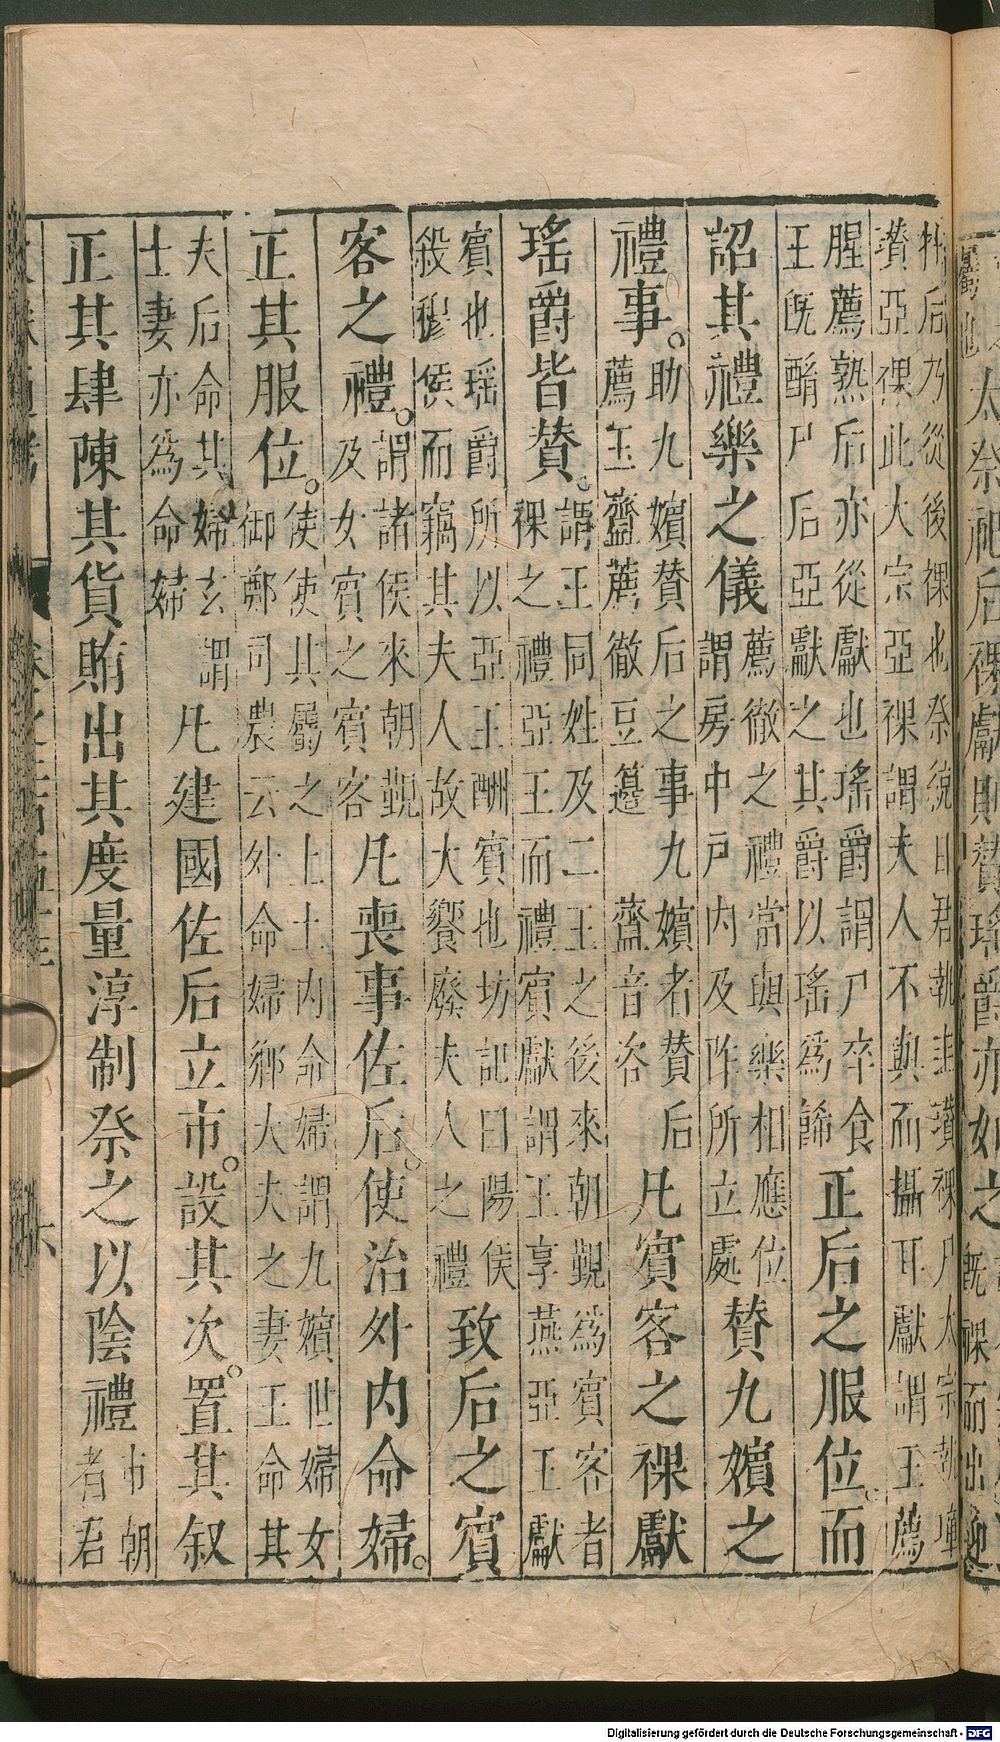 太祭祀后祼獻則贊瑤爵亦如之
旣祼而出迎
牲后乃從後祼也祭統曰君執圭瓚祼尸太宗執璋
瓚亞祼此大宗亞祼謂夫人不與而攝耳獻謂王薦
腥薦熟后亦從獻也瑤爵謂尸卒食
王旣酳尸后亞獻之其爵以瑤爲飾
正后之服位。而
詔其禮樂之儀
薦徹之禮當與樂相應位
謂房中戶內及阼所立處
贊九嬪之
禮事。
助九嬪贊后之事九嬪者贊后
薦玉齍薦徹豆籩 齍音咨
凡賓客之祼獻
瑤爵皆贊。
謂王同姓及二王之後來朝覲爲賓客者
祼之禮亞王而禮賓獻謂王享燕亞王獻
賓也瑤爵所以亞王酬賓也坊記曰陽侯
殺穆侯而竊其夫人故大饗廢夫人之禮
致后之賓
客之禮。
謂諸侯來朝覲
及女賓之賓客
凡喪事佐后。使治外内命婦。
正其服位。
使使其屬之上士内命婦謂九嬪世婦女
御鄭司農云外命婦卿大夫之妻王命其
夫后命其婦玄謂
士妻亦爲命婦
凡建國佐后立市。設其次。置其叙
正其肆陳其貨賄出其度量淳制祭之以陰禮
市朝
者君
六
Digitalisierung gefördert durch die Deutsche Forschungsgemeinschaft - DFG